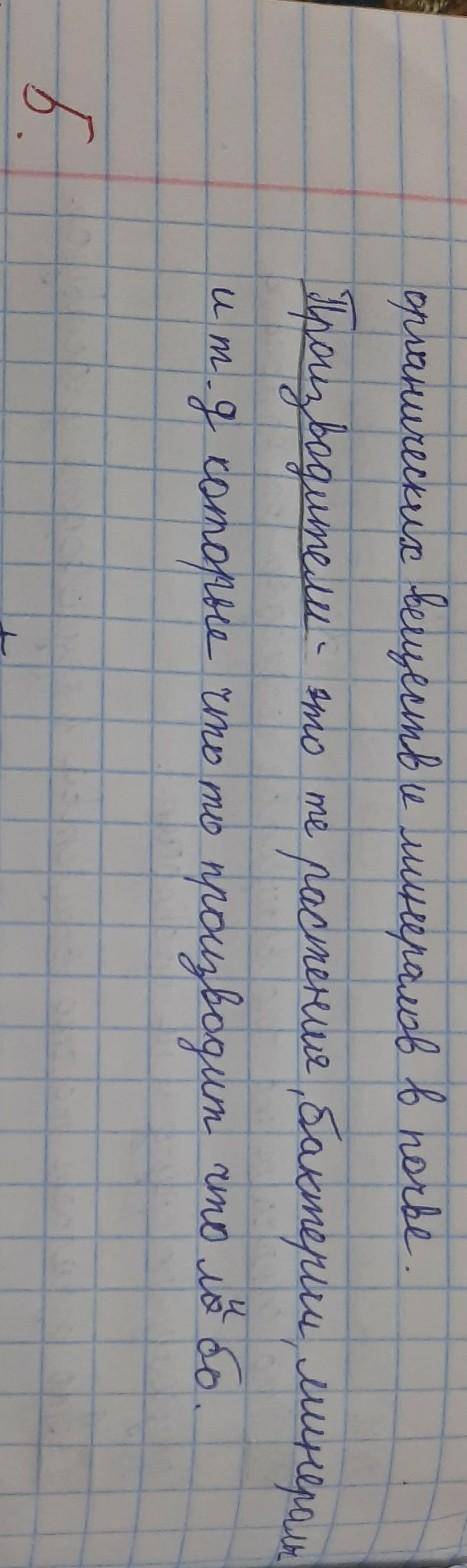 органических веществ и минералов в почве.
Производители - это те растения, бактерии, минералы
и т.д которые что то производит что либо.
Б.